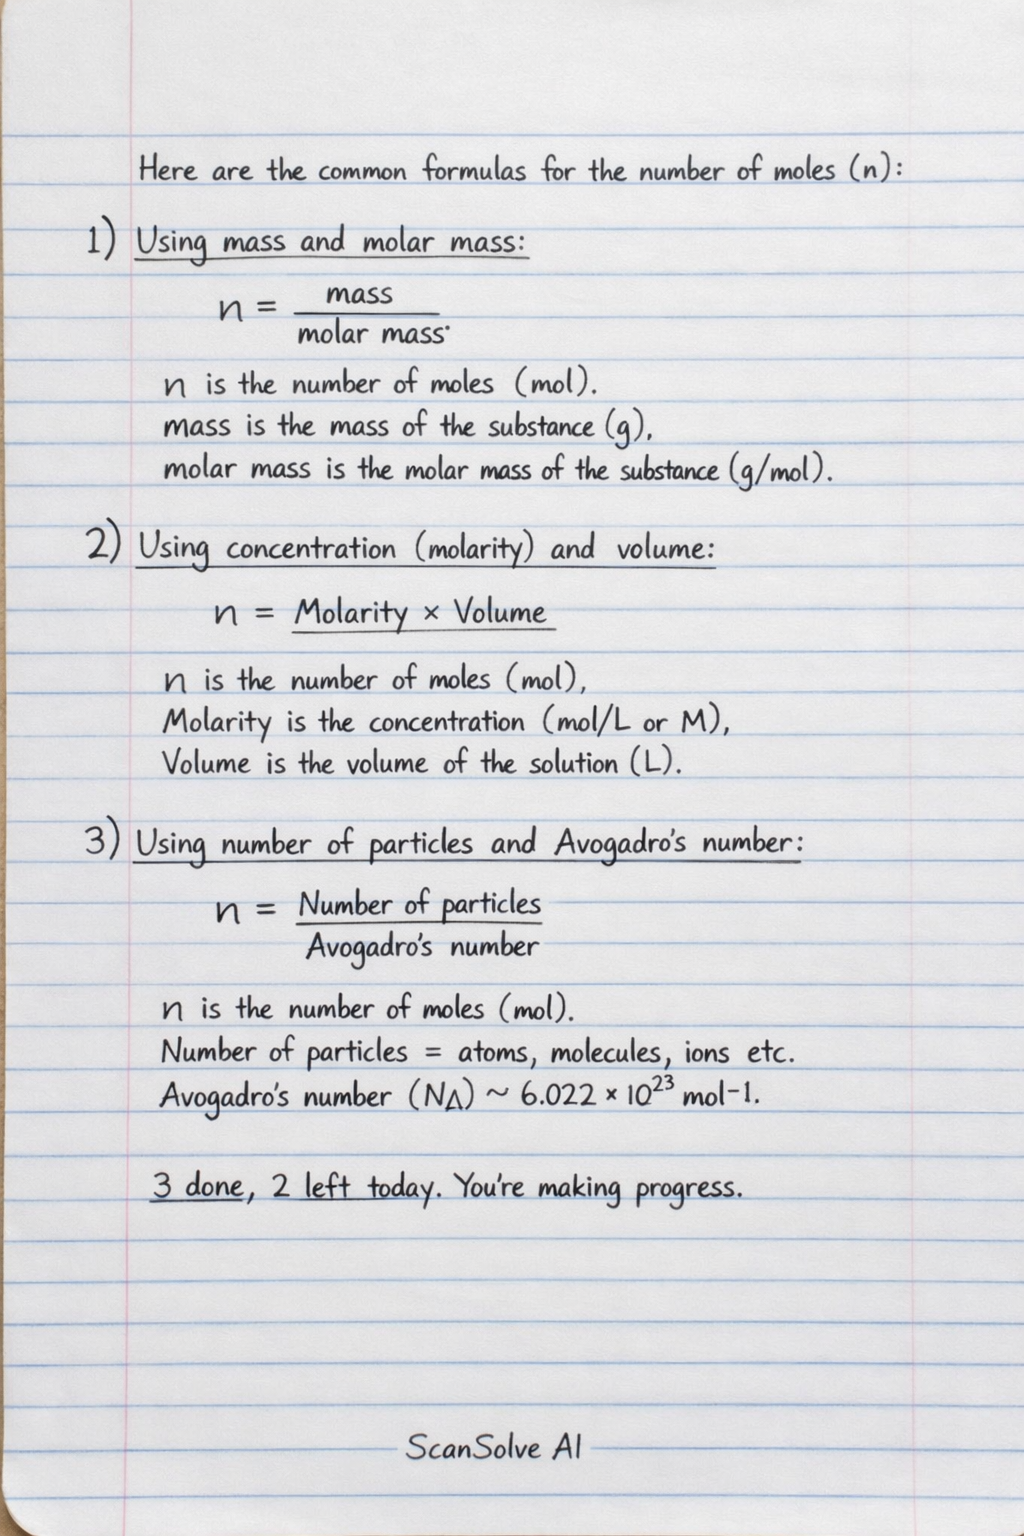 Here are the common formulas for the number of moles (n):
1) Using mass and molar mass:
n = mass
molar mass
n is the number of moles (mol).
mass is the mass of the substance (g),
molar mass is the molar mass of the substance (g/mol).
2) Using concentration (molarity) and volume:
n = Molarity × Volume
n is the number of moles (mol),
Molarity is the concentration (mol/L or M),
Volume is the volume of the solution (L).
3) Using number of particles and Avogadro's number:
n = Number of particles
Avogadro's number
n is the number of moles (mol).
Number of particles = atoms, molecules, ions etc.
Avogadro's number (NA) ~ 6.022 × 10²³ mol-1.
3 done, 2 left today. You're making progress.
ScanSolve AI